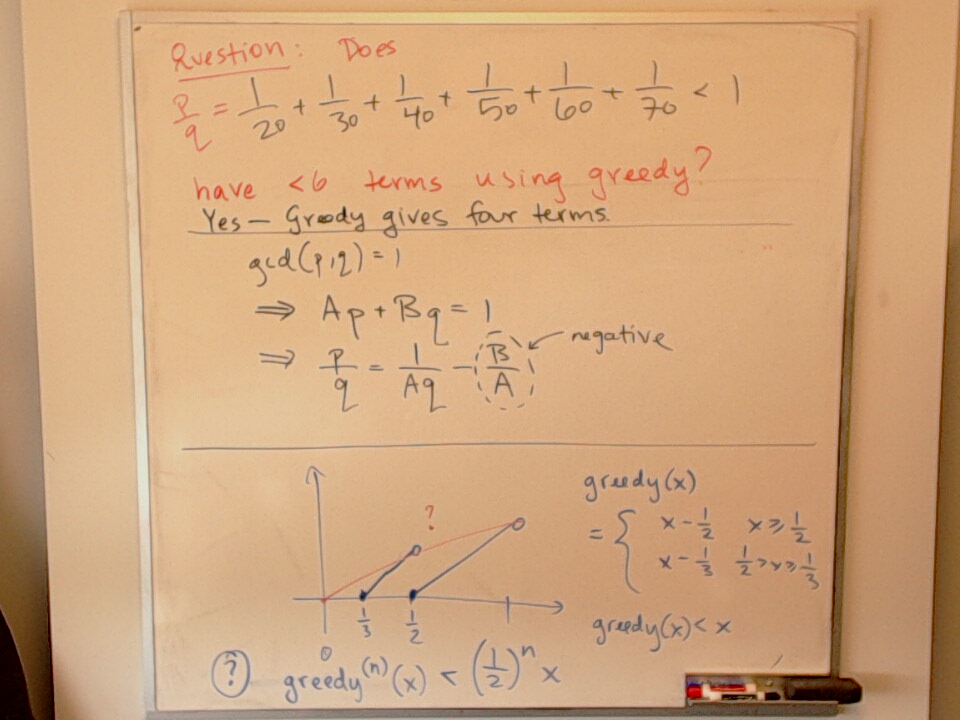 Question: Does
p/q = 1/20 + 1/30 + 1/40 + 1/50 + 1/60 + 1/70 < 1
have <6 terms using greedy?
Yes — Greedy gives four terms.
gcd(p,q) = 1
⇒ Ap + Bq = 1
⇒ p/q = 1/Aq − B/A ← negative
?
1/3 1/2
0
greedy(x)
= { x − 1/2 x ≥ 1/2
x − 1/3 1/2 > x ≥ 1/3
greedy(x) < x
? greedy^(n)(x) < (1/2)^n x